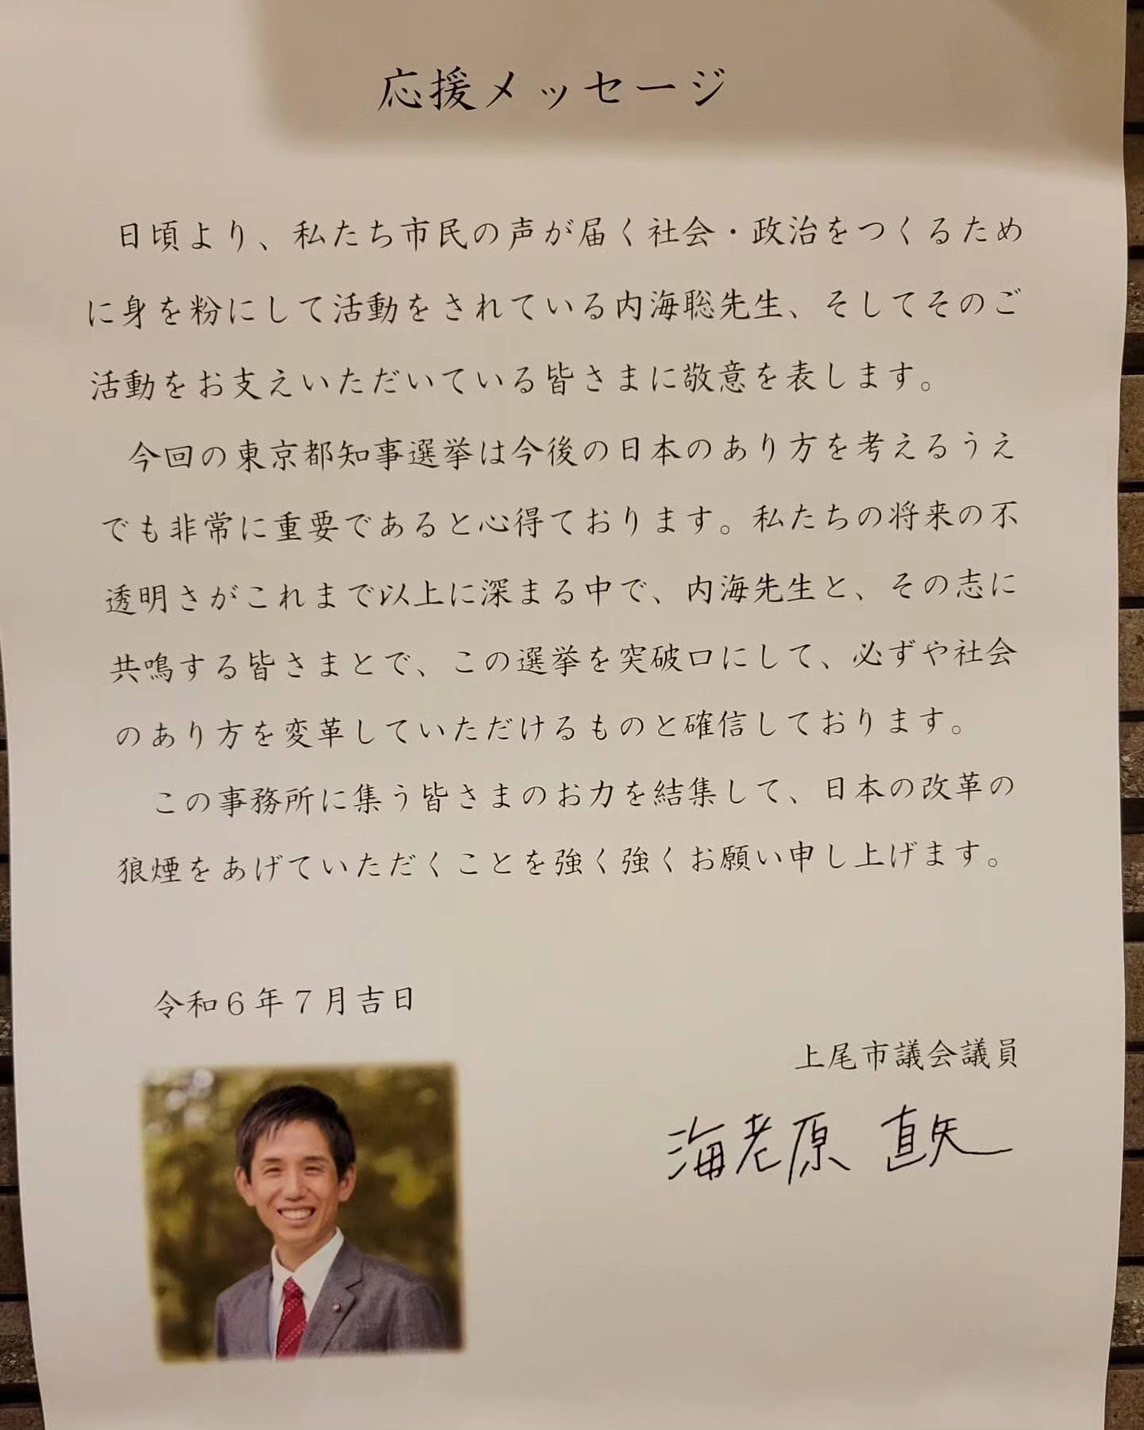 応援メッセージ
日頃より、私たち市民の声が届く社会・政治をつくるため
に身を粉にして活動をされている内海聡先生、そしてそのご
活動をお支えいただいている皆さまに敬意を表します。
今回の東京都知事選挙は今後の日本のあり方を考えるうえ
でも非常に重要であると心得ております。私たちの将来の不
透明さがこれまで以上に深まる中で、内海先生と、その志に
共鳴する皆さまとで、この選挙を突破口にして、必ずや社会
のあり方を変革していただけるものと確信しております。
この事務所に集う皆さまのお力を結集して、日本の改革の
狼煙をあげていただくことを強く強くお願い申し上げます。
令和６年７月吉日
上尾市議会議員
海老原 直矢